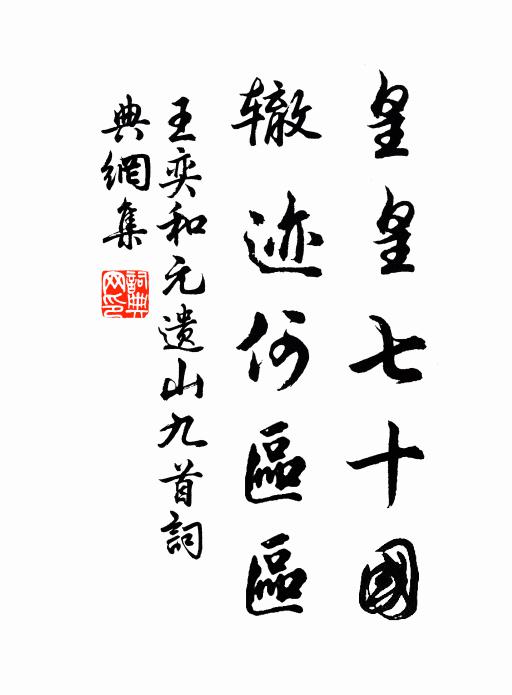 皇皇七十國
辙迹何區區
王奕和元遺山九首詞
典網集
詞典网印